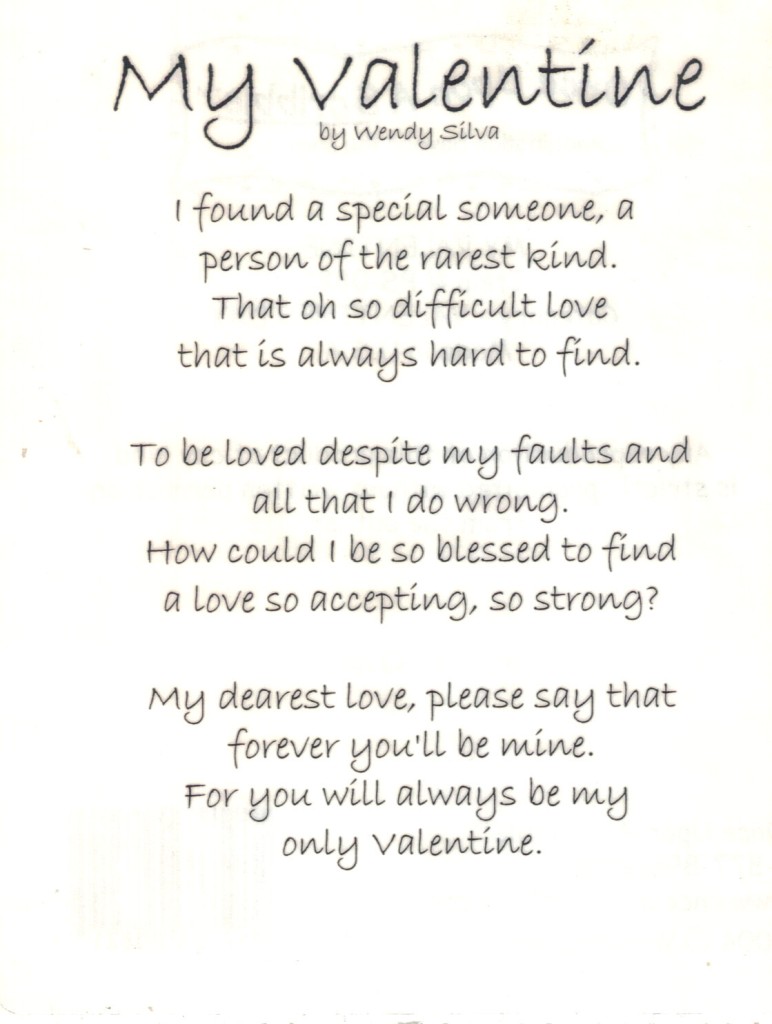 My Valentine
by Wendy Silva
I found a special someone, a
person of the rarest kind.
That oh so difficult love
that is always hard to find.
To be loved despite my faults and
all that I do wrong.
How could I be so blessed to find
a love so accepting, so strong?
My dearest love, please say that
forever you'll be mine.
For you will always be my
only Valentine.